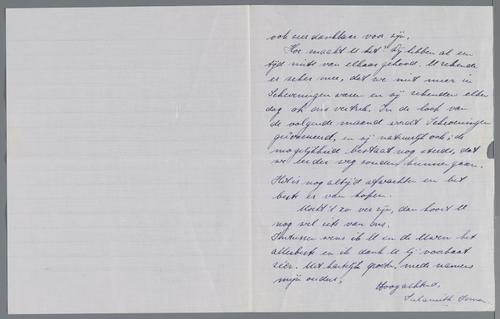 ook zeer dankbaar voor zijn.
Hoe maakt U het? Wij hebben al een
tijd niets van elkaar gehoord. U rekende
er zeker mee, dat we niet meer in
Scheveningen waren en wij rekenden elken
dag op ons vertrek. In de loop van
de volgende maand wordt Scheveningen
geëvacueerd, en wij natuurlijk ook; de
mogelijkheid bestaat nog steeds, dat
we eerder weg zouden kunnen gaan.
Het is nog altijd afwachten en het
beste er van hopen.
Mocht 't zo ver zijn, dan hoort U
nog wel iets van ons.
Intussen wens ik U en de Uwen het
allerbeste en ik dank U bij voorbaat
zéér. Met hartelijke groeten, mede namens
mijn ouders,
Hoogachtend,